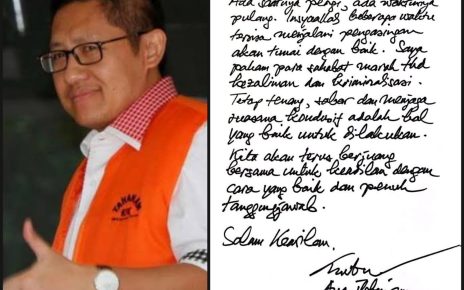 Ada saatnya pergi, ada waktunya
pulang. Insyaallah beberapa waktu
tersisa menjalani pengasingan
akan tunai dengan baik. Saya
paham para sahabat marah thd
kezaliman dan kriminalisasi.
Tetap tenang, sabar dan menjaga
suasana kondusif adalah hal
yang baik untuk dilakukan.
Kita akan terus berjuang
bersama untuk keadilan dengan
cara yang baik dan penuh
tanggungjawab.
Salam Keadilan.
TAHANAN